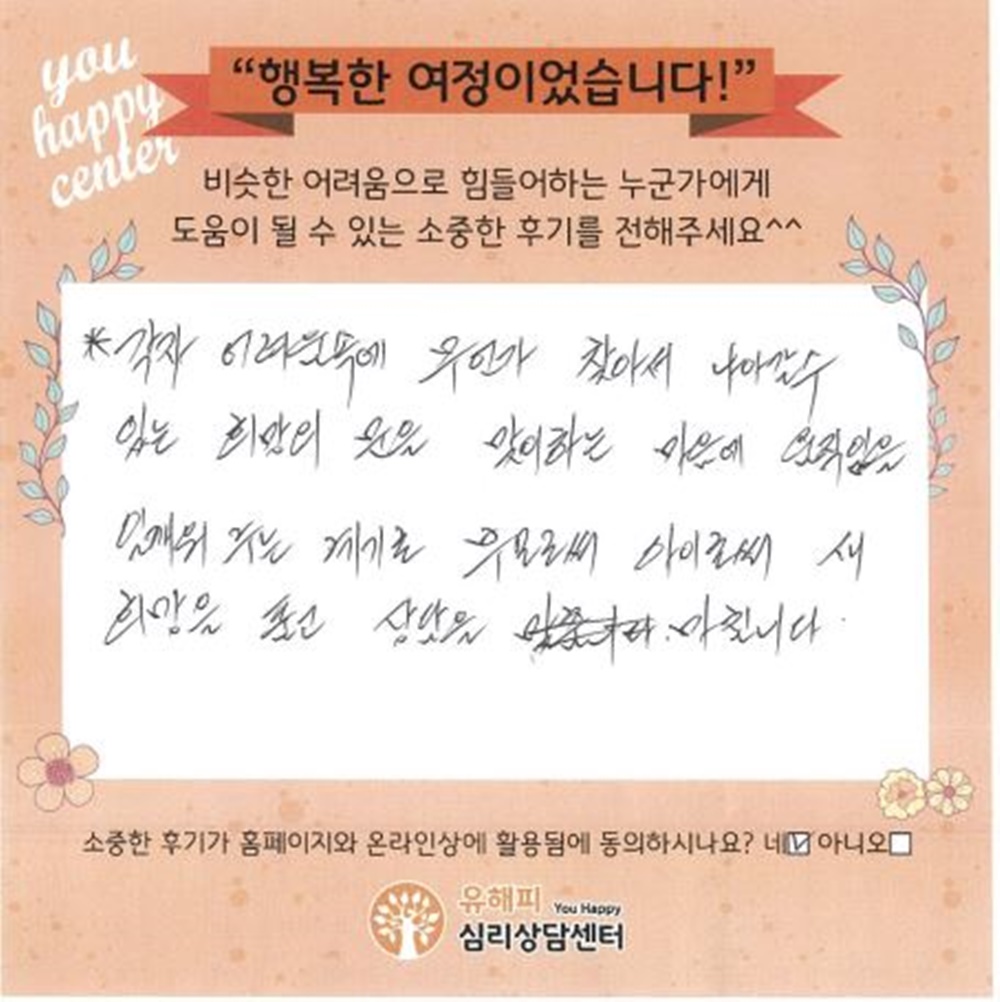 you
happy
center
“행복한 여정이었습니다!”
비슷한 어려움으로 힘들어하는 누군가에게
도움이 될 수 있는 소중한 후기를 전해주세요^^
*각자 어려움속에 무언가 찾아서 나아갈수
있는 희망의 문을 맞이하는 마음에 움직임을
일깨워 주는 계기로 부모로써 아이로써 새
희망을 품고 상담을 마칩니다.
소중한 후기가 홈페이지와 온라인상에 활용됨에 동의하시나요? 네☑ 아니오☐
유해피 You Happy
심리상담센터